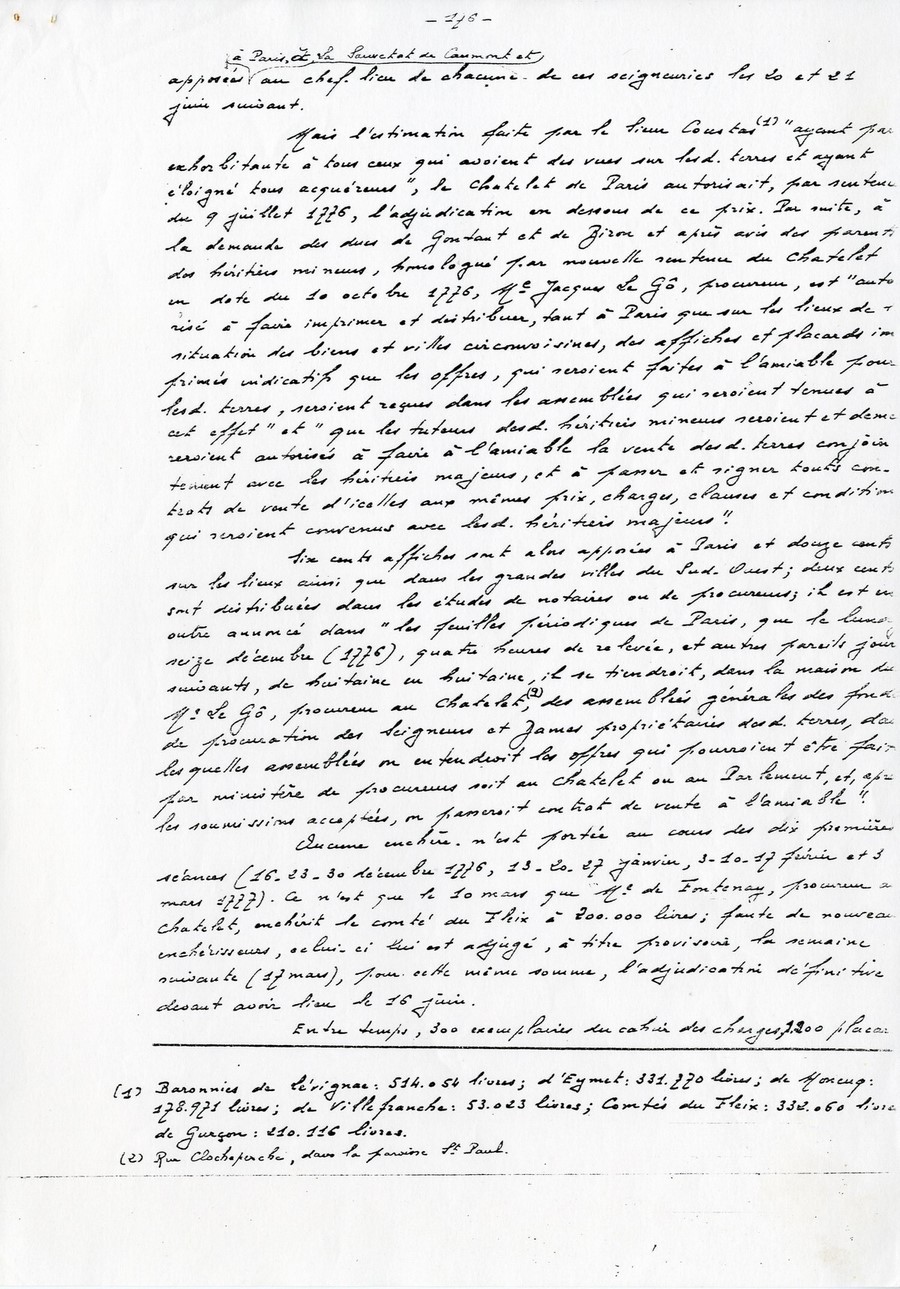 - 176 -
à Paris, et La Sauvetat de Caumont et
apposés au chef-lieu de chacune de ces seigneuries les 20 et 21
juin suivant.
Mais l'estimation faite par le sieur Coustas (1) "ayant par
exhorbitante à tous ceux qui avoient des vues sur lesd. terres et ayant
éloigné tous acquéreurs", le Chatelet de Paris autorisait, par sentence
du 9 juillet 1776, l'adjudication en dessous de ce prix. Par suite, à
la demande des ducs de Gontaut et de Biron et après avis des parents
des héritiers mineurs, homologué par nouvelle sentence du Chatelet
en date du 10 octobre 1776, Me Jacques Le Gô, procureur, est "auto
risé à faire imprimer et distribuer, tant à Paris que sur les lieux de
situation des biens et villes circonvoisines, des affiches et placards im
primés indicatifs que les offres, qui seroient faites à l'amiable pour
lesd. terres, seroient reçues dans les assemblées qui seroient tenues à
cet effet" et "que les tuteurs desd. héritiers mineurs seroient et deme
reroient autorisés à faire à l'amiable la vente desd. terres conjoin
tement avec les héritiers majeurs, et à passer et signer touts con-
trats de vente d'icelles aux mêmes prix, charges, clauses et condition
qui seroient convenus avec lesd. héritiers majeurs".
Six cents affiches sont alors apposées à Paris et douze cents
sur les lieux ainsi que dans les grandes villes du Sud-Ouest; deux cents
sont distribuées dans les études de notaires ou de procureurs; il est en
outre annoncé dans "les feuilles périodiques de Paris, que le lundi
seize décembre (1776), quatre heures de relevée, et autres pareils jour
suivants, de huitaine en huitaine, il se tiendroit, dans la maison du
Me Le Gô, procureur au Chatelet, (2) des assemblées générales des fondé
de procuration des Seigneurs et Dames propriétaires desd. terres, dan
lesquelles assemblées on entendroit les offres qui pourroient être fait
par ministère de procureurs soit au Chatelet ou au Parlement, et, ap
les soumissions acceptées, on passeroit contrat de vente à l'amiable".
Aucune enchère n'est portée au cours des dix premières
séances (16-23-30 décembre 1776, 13-20-27 janvier, 3-10-17 février et 3
mars 1777). Ce n'est que le 10 mars que Me de Fontenay, procureur a
Chatelet, enchérit le comté du Fleix à 200.000 livres; faute de nouveau
enchérisseurs, celui-ci lui est adjugé, à titre provisoire, la semaine
suivante (17 mars), pour cette même somme, l'adjudication définitive
devant avoir lieu le 16 juin.
Entre temps, 300 exemplaires du cahier des charges, 1200 placar
(1) Baronnies de Lévignac: 514.054 livres; d'Eymet: 331.770 livres; de Moncuq:
178.971 livres; de Villefranche: 53.023 livres; Comtés du Fleix: 332.060 livre
de Gurçon: 210.116 livres.
(2) Rue Clocheperche, dans la paroisse St Paul.